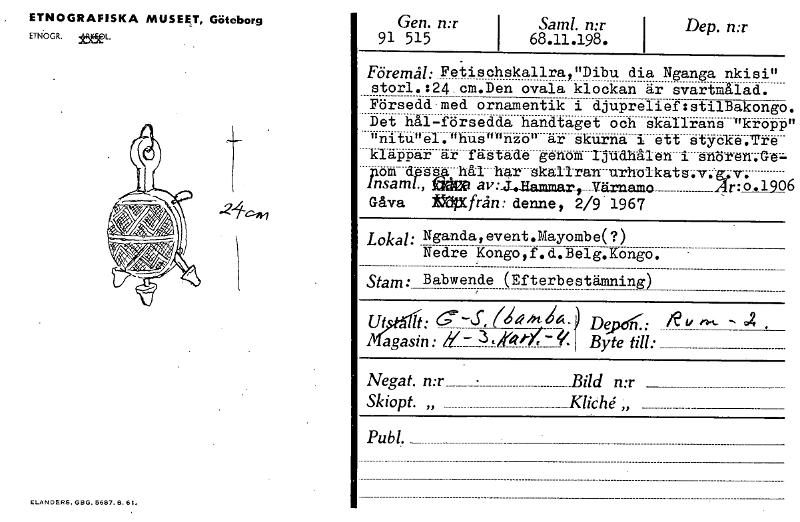 ETNOGRAFISKA MUSEET, Göteborg
ETNOGR.
24cm
ELANDERS, GBG. 5687. 8. 61.
Gen. n:r Saml. n:r Dep. n:r
91 515 68.11.198.
Föremål: Fetischskallra,"Dibu dia Nganga nkisi"
storl.:24 cm.Den ovala klockan är svartmålad.
Försedd med ornamentik i djuprelief:stilBakongo.
Det hål-försedda handtaget och skallrans "kropp"
"nitu"el."hus""nzo" är skurna i ett stycke.Tre
kläppar är fästade genom ljudhålen i snören.Ge-
nom dessa hål har skallran urholkats.v.g.v.
Insaml., av: J.Hammar, Värnamo År:o.1906
Gåva från: denne, 2/9 1967
Lokal: Nganda,event.Mayombe(?)
Nedre Kongo,f.d.Belg.Kongo.
Stam: Babwende (Efterbestämning)
Utställt: G-S.(bamba.) Depon.: Rum-2.
Magasin: H-3.Kart.-4. Byte till:
Negat. n:r Bild n:r
Skiopt. „ Kliché „
Publ.